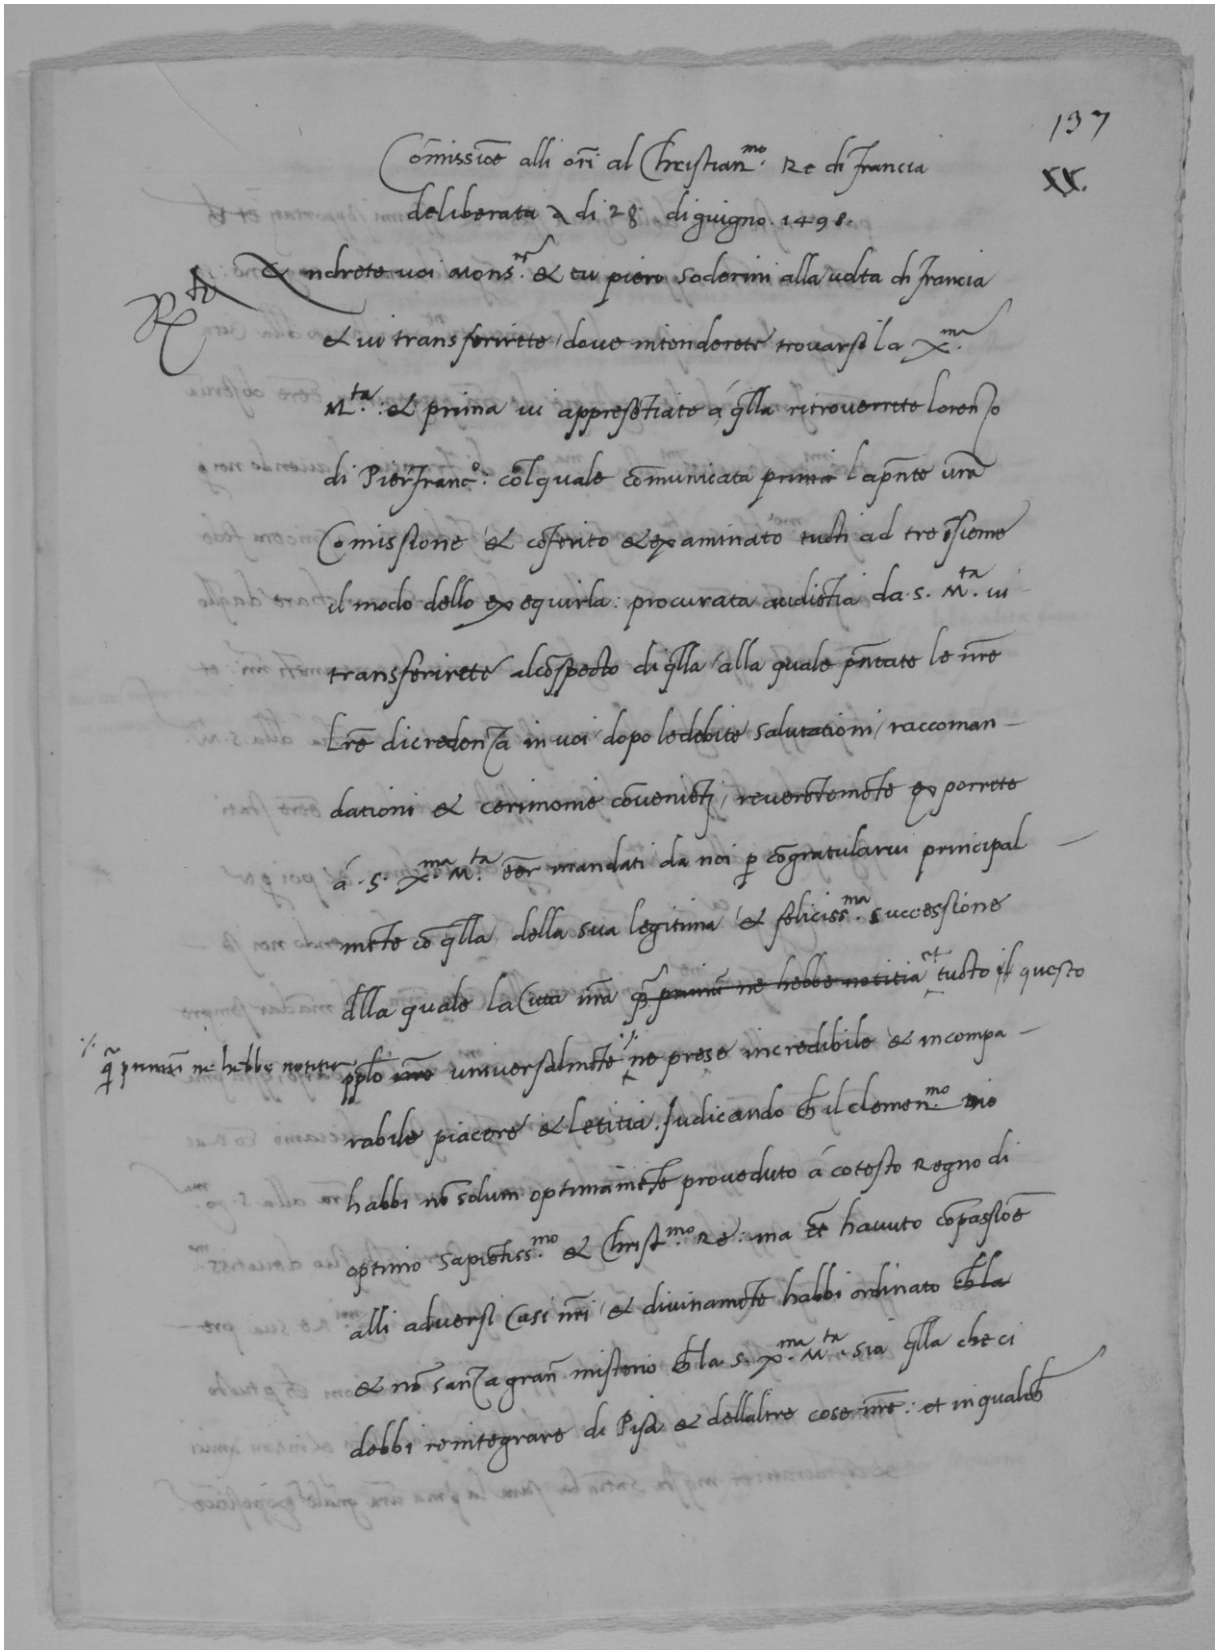 137
XX.
Cõmissiõe alli orĩ al Christian.mo Re di francia
deliberata a di 28. di giugno. 1498.
Andrete voi Mons.re & tu piero soderini alla volta di francia
& vi transferirete / dove intenderete trovarsi la X.ma
M.ta: & prima vi appresẽtiate á q̃lla ritroverrete lorenzo
di Pierfranc.o: cõl quale cõmunicata prima la pñte vrã
Comissione & cõferito & examinato tucti ad tre ĩsieme
il modo dello exequirla: procurata audiẽtia da .s. M.ta vi
transferirete al cõspecto di q̃lla / alla quale pñtate le nrẽ
Lrẽ di credenza in voi / dopo le debite salutationi / raccoman-
dationi & cerimonie cõveniẽti / reverẽtemẽte exporrete
á .s. X.ma M.ta eẽr mandati da noi p cõgratularvi principal-
mẽte cõ q̃lla della sua legitima & feliciss.ma successione
Della quale la Cita nrã q̃ primũ ne hebbe notitia et tucto il questo
./. q̃ primũ ne hebbe notitia
pplo nrõ universalmẽte ./. ne prese incredibile & incompa-
rabile piacere & letitia. Judicando ch̃ il clemen.mo Dio
habbi nõ solum optimamẽte proveduto á cotesto Regno di
optimo sapiẽtiss.mo & Christ.mo Re: ma eẽt havuto cõpassiõe
alli adversi casi nrĩ / & divinamẽte habbi ordinato ch̃ la
& nõ sanza grañ misterio ch̃ la .s. X.ma M.ta sia q̃lla che ci
debbi reintegrare di Pisa & dell altre cose nrẽ: et in qualch̃